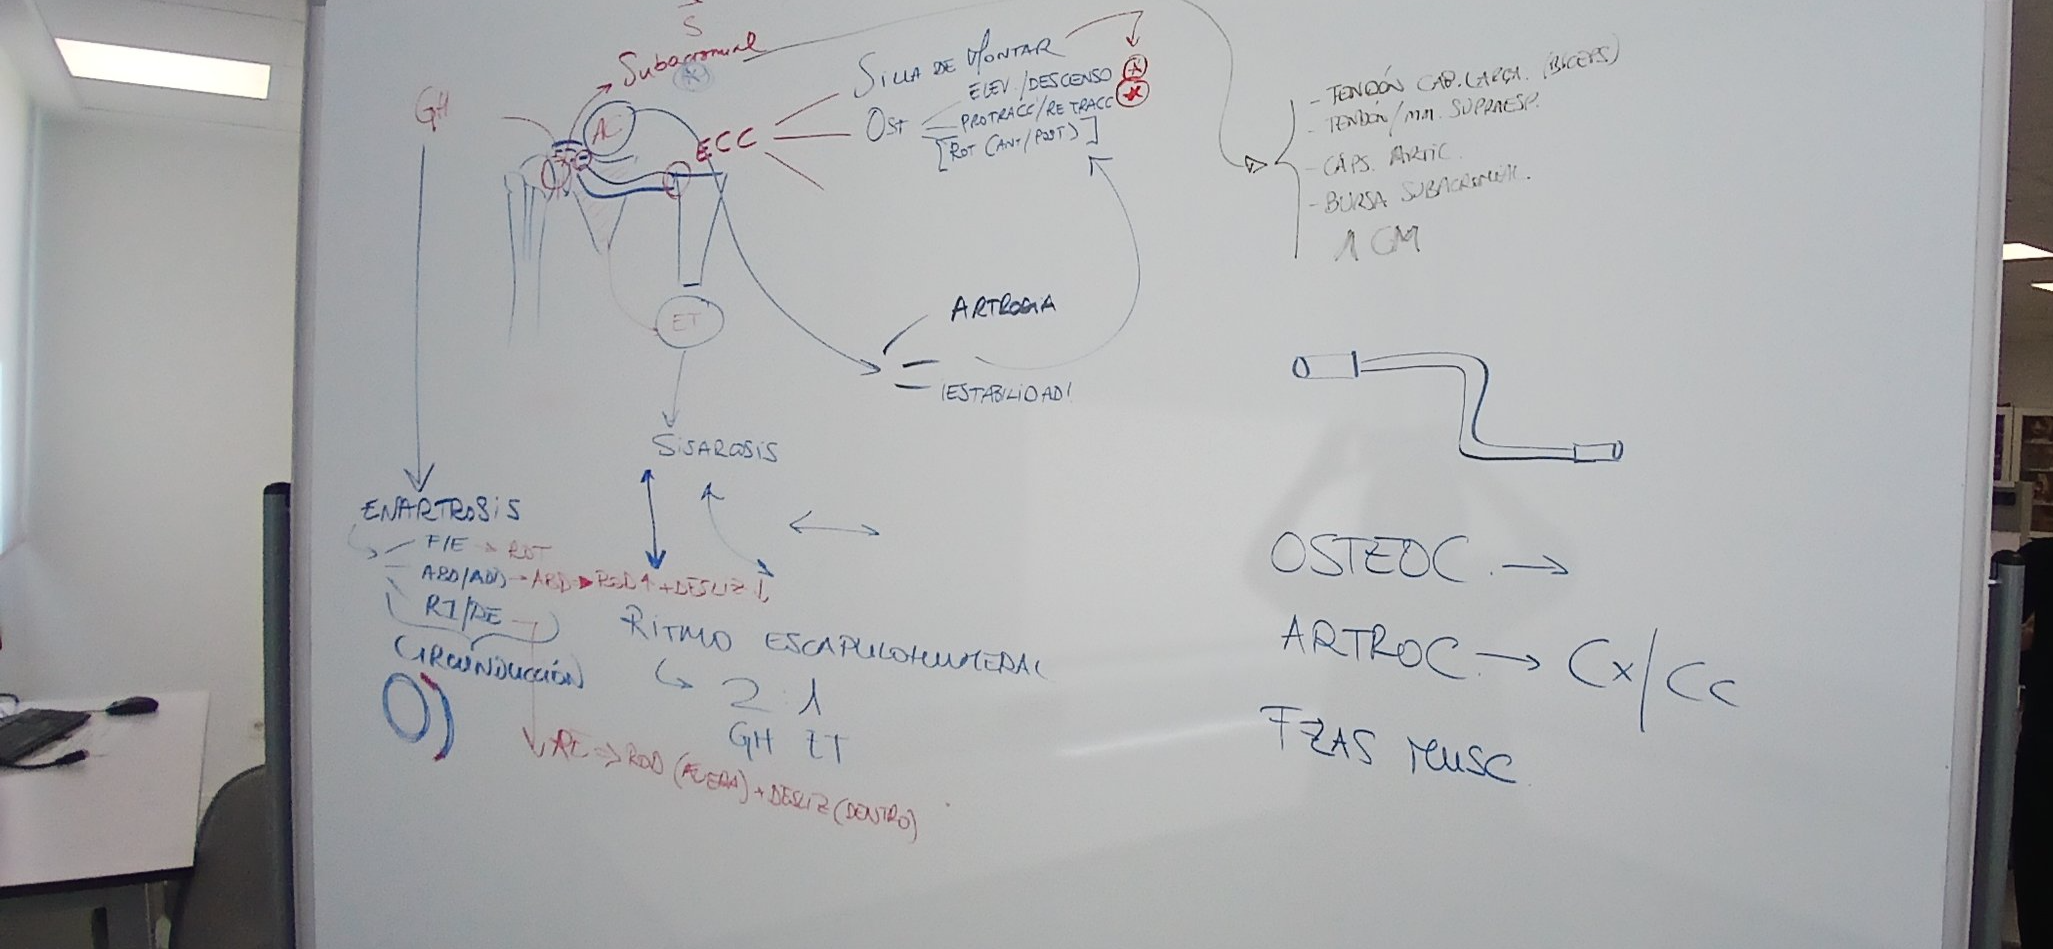 S
Subacromial
GH
AC
ECC
SILLA DE MONTAR
OST
ELEV./DESCENSO
PROTRACC/RETRACC
[ROT (ANT/POST)]
- TENDÓN CAB. LARGA (BÍCEPS)
- TENDÓN/MM. SUPRAESP.
- CÁPS. ARTIC.
- BURSA SUBACROMIAL.
1 CM
ET
ARTRODIA
¡ESTABILIDAD!
SISARCOSIS
ENARTROSIS
F/E → ROT
ABD/ADD → ABD → ROD ↑ + DESLIZ ↓
RI/RE
CIRCUNDUCCIÓN
RITMO ESCAPULOHUMERAL
2:1
GH ET
RE → ROD (FUERA) + DESLIZ (DENTRO)
OSTEOC. →
ARTROC. → Cx/Cc
FZAS MUSC